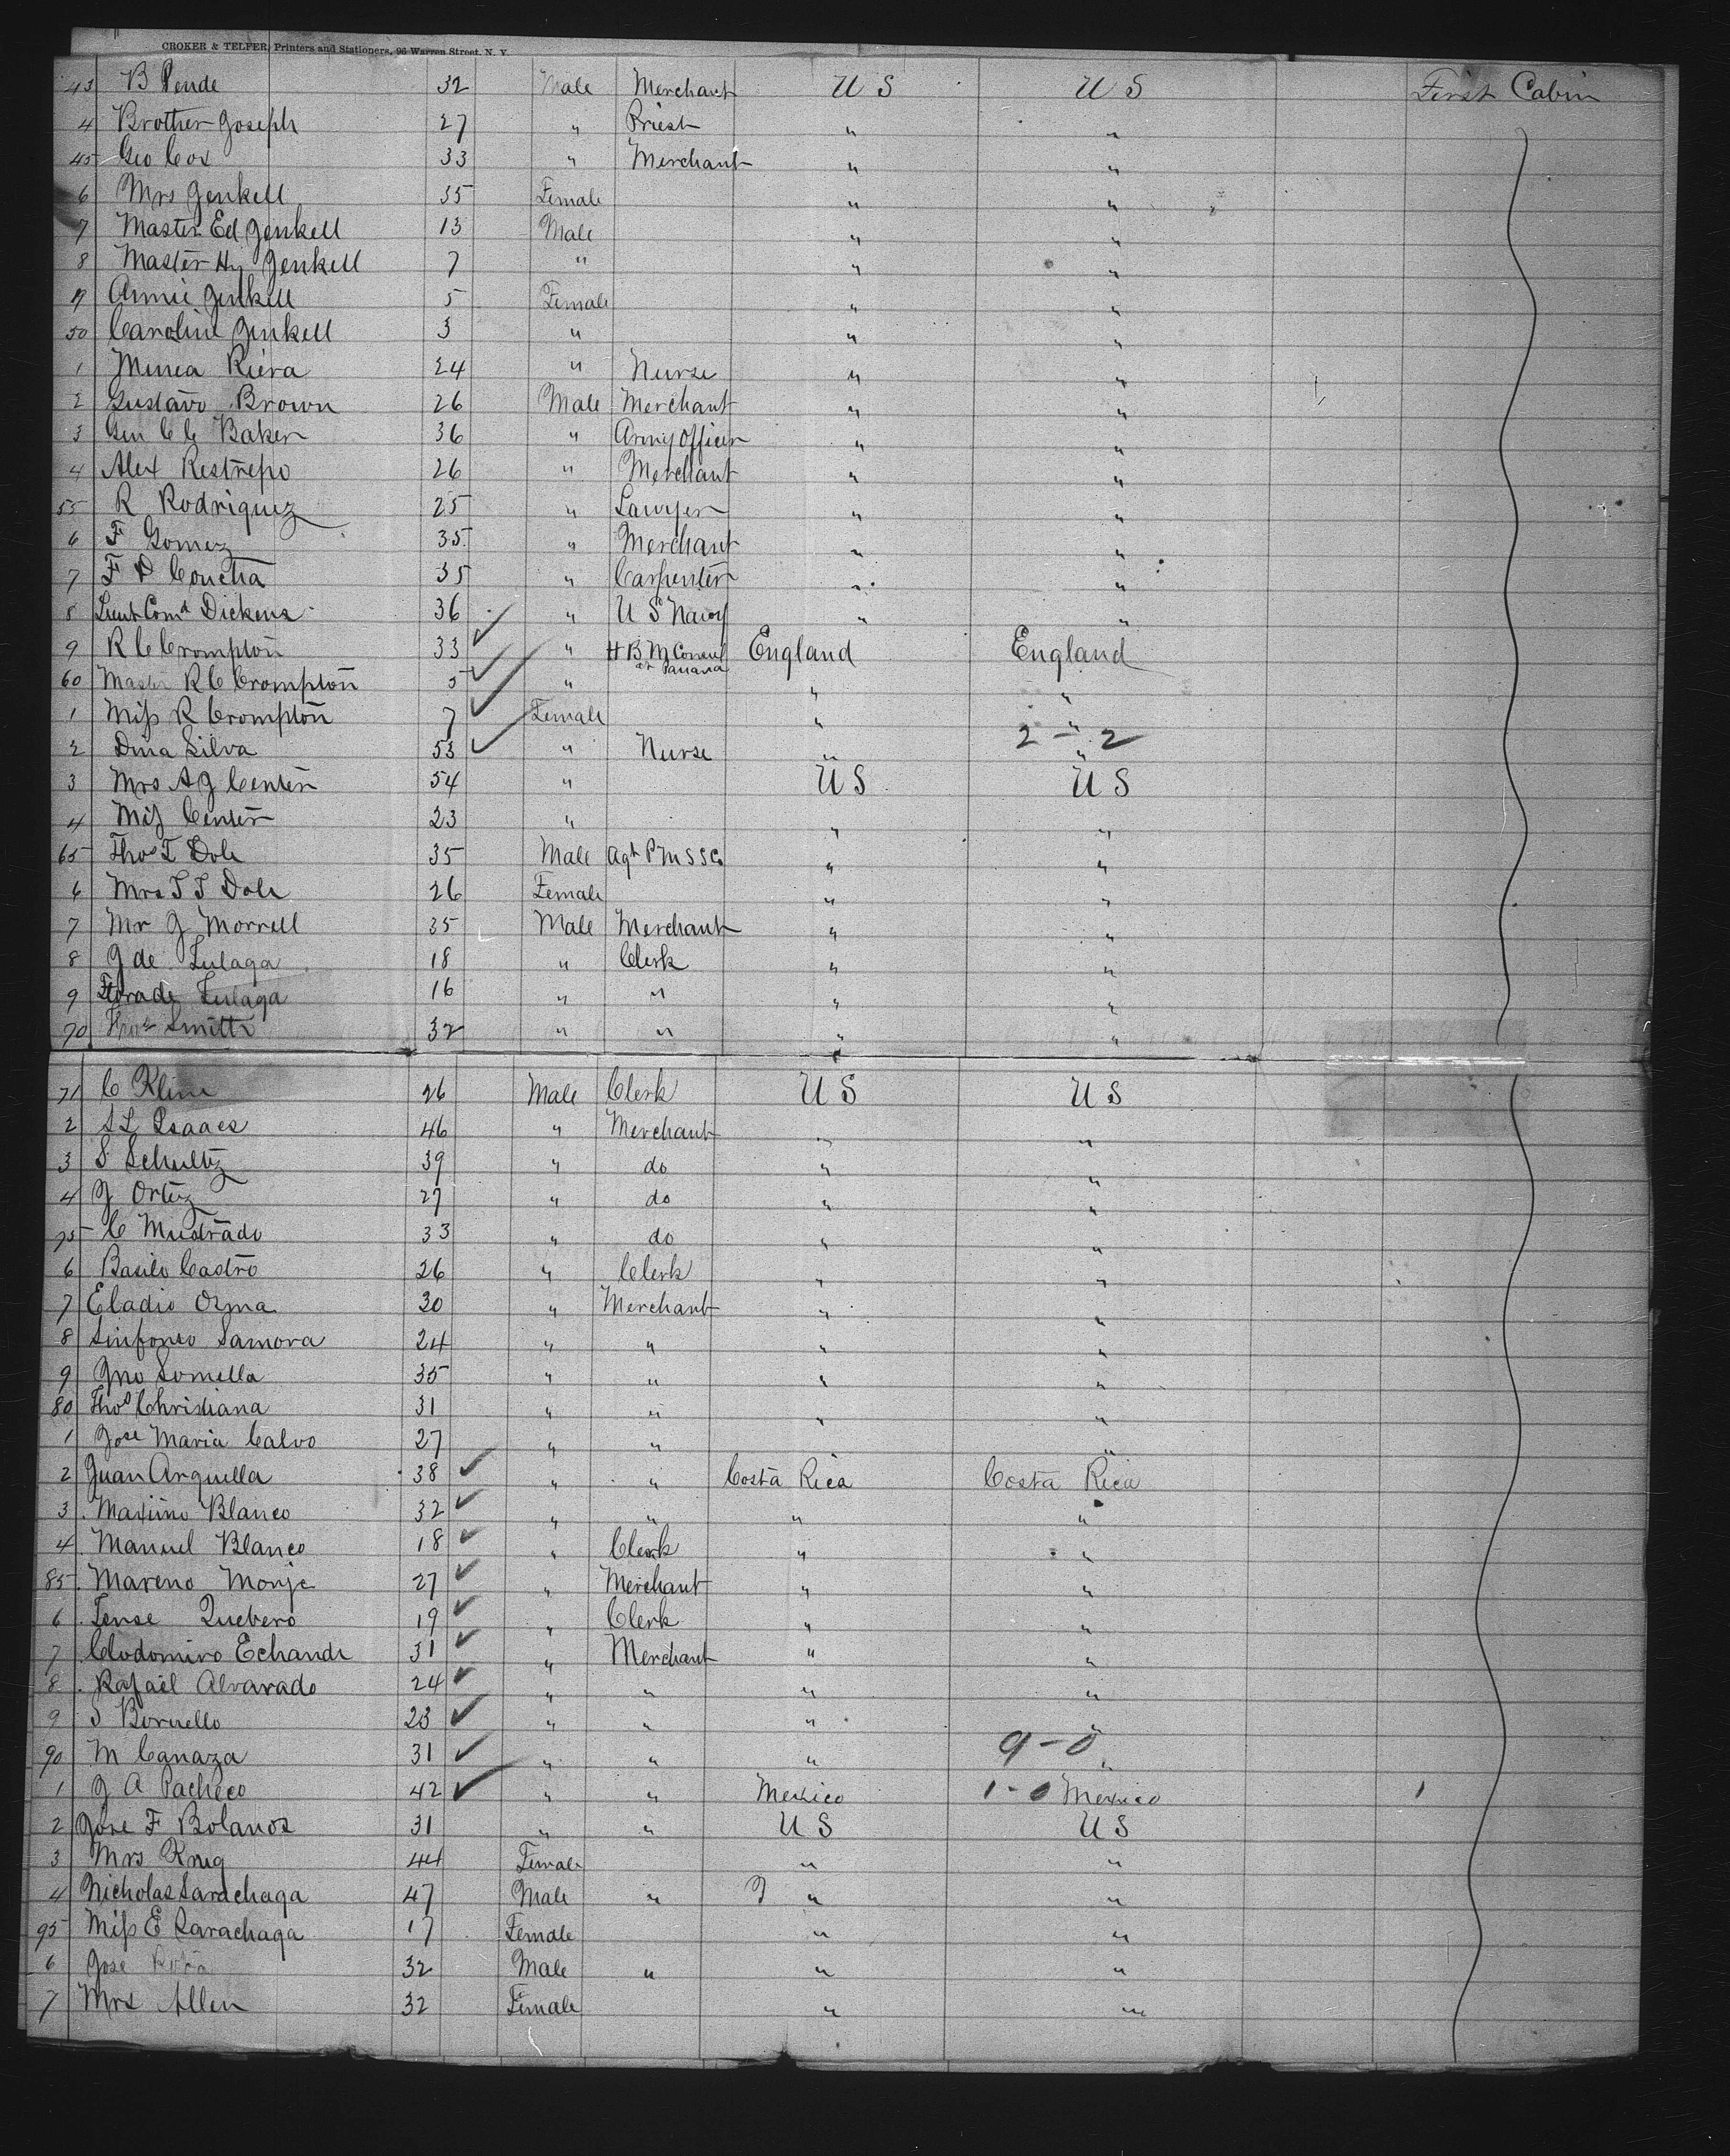 CROKER & TELFER, Printers and Stationers, 96 Warren Street, N. Y.
43 B Pende 32 Male Merchant U S U S First Cabin
4 Brother Joseph 27 " Priest " "
45 Geo Cox 33 " Merchant " "
6 Mrs Jenkell 35 Female " "
7 Master Ed Jenkell 13 Male " "
8 Master Hy Jenkell 7 " " "
9 Annie Jenkell 5 Female " "
50 Caroline Jenkell 3 " " "
1 Riera 24 " Nurse " "
2 Gustavo Brown 26 Male Merchant " "
3 Gen C C Baker 36 " Army Officer " "
4 Alex Restrepo 26 " Merchant " "
55 R Rodriguez 25 " Lawyer " "
6 F Gomez 35 " Merchant " "
7 F D Concha 35 " Carpenter " "
8 Lieut Comd Dickens 36 " U S Navy " "
9 R C Crompton 33 " H B M Consul at Panama England England
60 Master R C Crompton 5 " " "
1 Miss R Crompton 7 Female " "
2 Dina Silva 53 " Nurse " 2 - 2 "
3 Mrs A J Center 54 " U S U S
4 Miss Center 23 " " "
65 Thos T Dole 35 Male Agt P M S S Co " "
6 Mrs T T Dole 26 Female " "
7 Mr J Morrell 35 Male Merchant " "
8 J de Zulaga 18 " Clerk " "
9 Zulaga 16 " " " "
70 Thos Smith 32 " " " "
71 C Kline 26 Male Clerk U S U S
2 S L Isaacs 46 " Merchant " "
3 S Schultz 39 " do " "
4 J Ortiz 27 " do " "
75 C 33 " do " "
6 Basilo Castro 26 " Clerk " "
7 Eladio Osma 30 " Merchant " "
8 Sinfonio Samora 24 " " " "
9 Jno Somella 35 " " " "
80 Thos Christiana 31 " " " "
1 Jose Maria Calvo 27 " " " "
2 Juan Arguella 38 " " Costa Rica Costa Rica
3 Maximo Blanco 32 " " " "
4 Manuel Blanco 18 " Clerk " "
85 Mareno Monje 27 " Merchant " "
6 Quebero 19 " Clerk " "
7 Clodomiro Echandi 31 " Merchant " "
8 Rafael Alvarado 24 " " " "
9 S 23 " " " "
90 M Canaza 31 " " " 9 - 0 "
1 J A Pacheco 42 " " Mexico 1 - 0 Mexico
2 Jose F Bolanos 31 " " U S U S
3 Mrs Krug 44 Female " "
4 Nicholas Sarachaga 47 Male " " "
95 Miss E Sarachaga 17 Female " "
6 Jose 32 Male " " "
7 Mrs Allen 32 Female " "